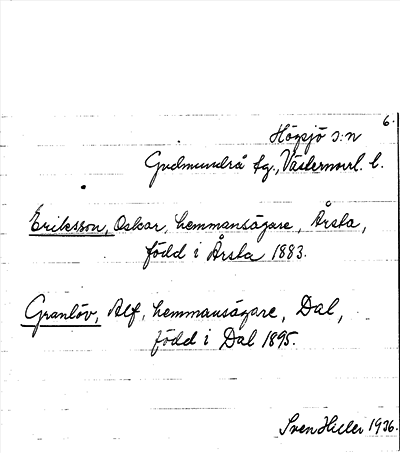 6.
Högsjö s:n
Gudmundrå tg., Västernorrl. l.
Eriksson, Oskar, hemmansägare, Årsta,
född i Årsta 1883.
Granlöv, Alf, hemmansägare, Dal,
född i Dal 1895.
Sven Hisler 1936.